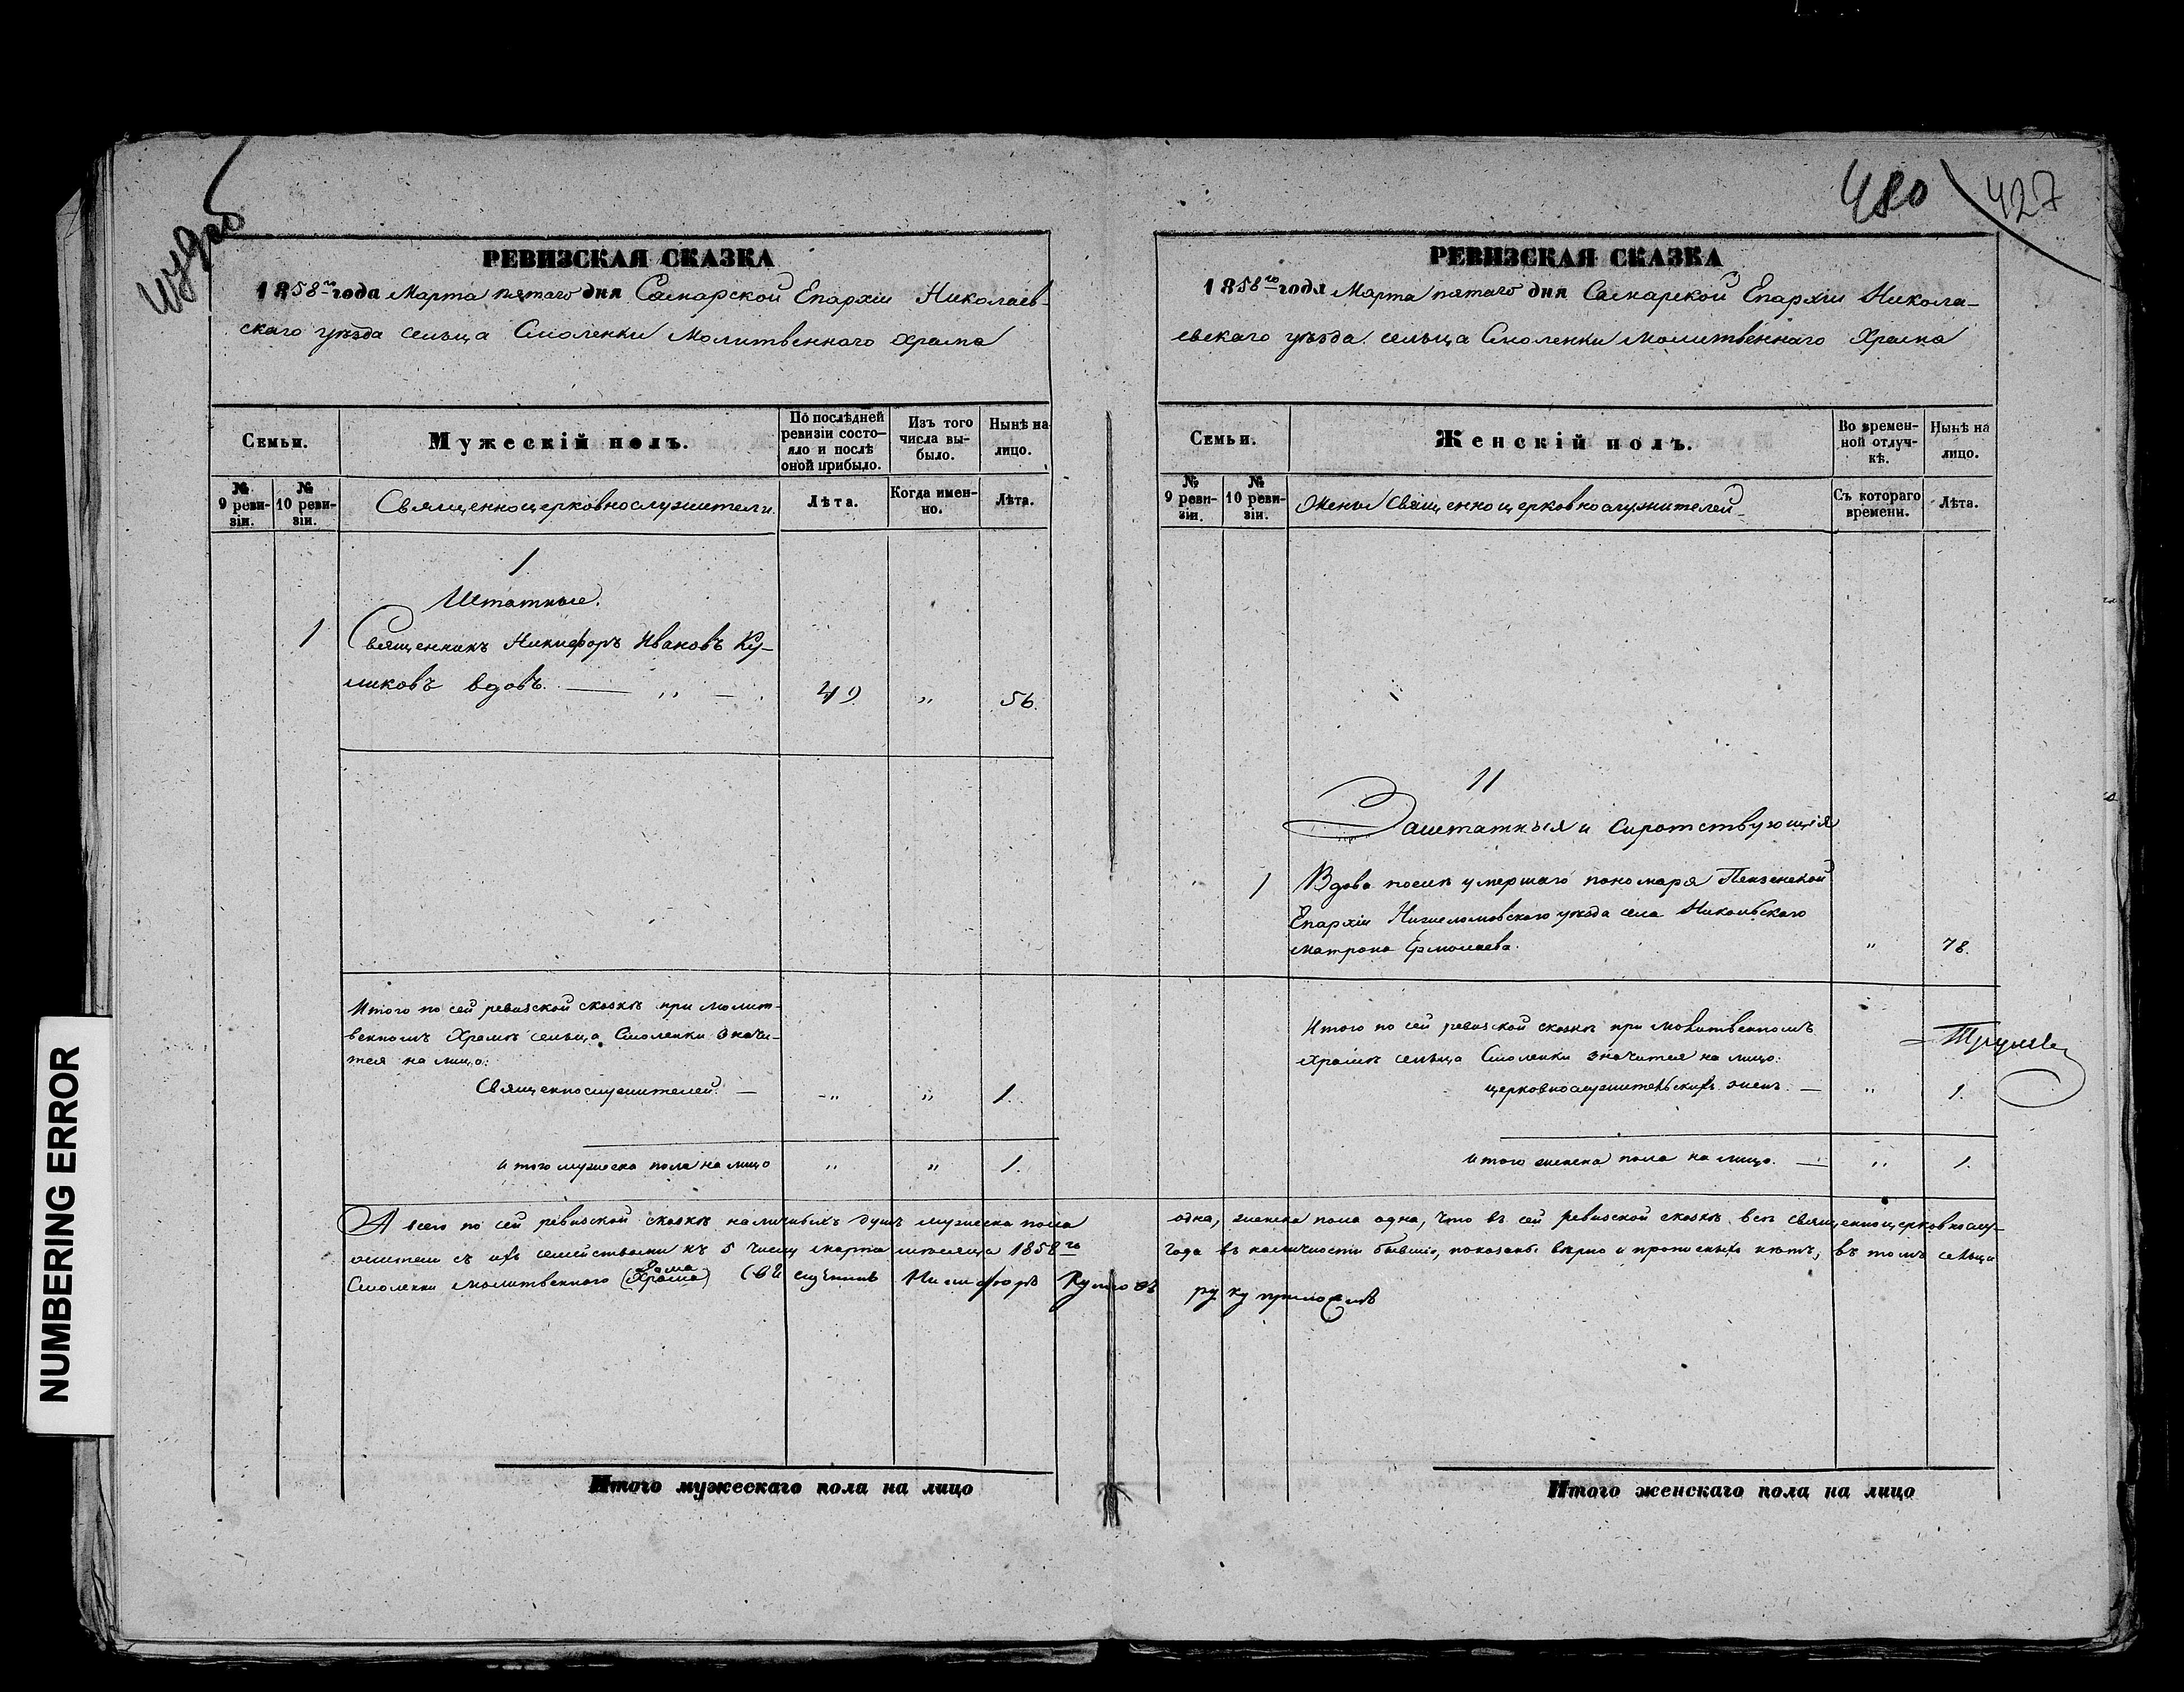 480
427
РЕВИЗСКАЯ СКАЗКА
1858го года Марта пятаго дня Самарской Епархіи Николаев-
скаго уѣзда сельца Смоленки Молитвеннаго Храма
Семьи.
Мужескій полъ.
По послѣдней
ревизіи состо-
яло и послѣ
оной прибыло.
Изъ того
числа вы-
было.
Нынѣ на
лицо.
№
9 реви-
зіи.
№
10 реви-
зіи.
Священноцерковнослужители.
Лѣта.
Когда имен-
но.
Лѣта.
1
Штатные.
1 Священникъ Никифоръ Ивановъ Ку-
ликовъ вдовъ. — „ — 49. „ 56.
Итого по сей ревизской сказкѣ при молит-
венномъ Храмѣ сельца Смоленки значи-
тся на лицо:
Священнослужителей. — „ „ 1.
Итого мужеска пола на лицо „ „ 1.
РЕВИЗСКАЯ СКАЗКА
1858го года Марта пятаго дня Самарской Епархіи Никола-
евскаго уѣзда сельца Смоленки молитвеннаго Храма
Семьи.
Женскій полъ.
Во времен-
ной отлуч-
кѣ.
Нынѣ на
лицо.
№
9 реви-
зіи.
№
10 реви-
зіи.
Жены Священноцерковнослужителей
Съ котораго
времени.
Лѣта.
II
Заштатныя и Сиротствующія
1 Вдова послѣ умершаго пономаря Пензенской
Епархіи Нижеломовскаго уѣзда села Никольскаго
Матрона Ермолаева. „ 78.
Итого по сей ревизской сказкѣ при молитвенномъ
храмѣ сельца Смоленки значится на лицо:
церковнослужительскихъ женъ. — „ 1.
Итого женска пола на лицо. — „ 1.
А всего по сей ревизской сказкѣ наличныхъ душъ мужеска пола одна, женска пола одна, что въ сей ревизской сказкѣ всѣ священноцерковнослу-
жители съ ихъ семействами къ 5 числу марта мѣсяца 1858го года въ наличности бывшіе, показаны вѣрно и прописныхъ нѣтъ, въ томъ сельца
Смоленки молитвеннаго (Храма) Дома Священникъ Никифоръ Куликовъ руку приложилъ
Итого мужескаго пола на лицо
Итого женскаго пола на лицо
NUMBERING ERROR